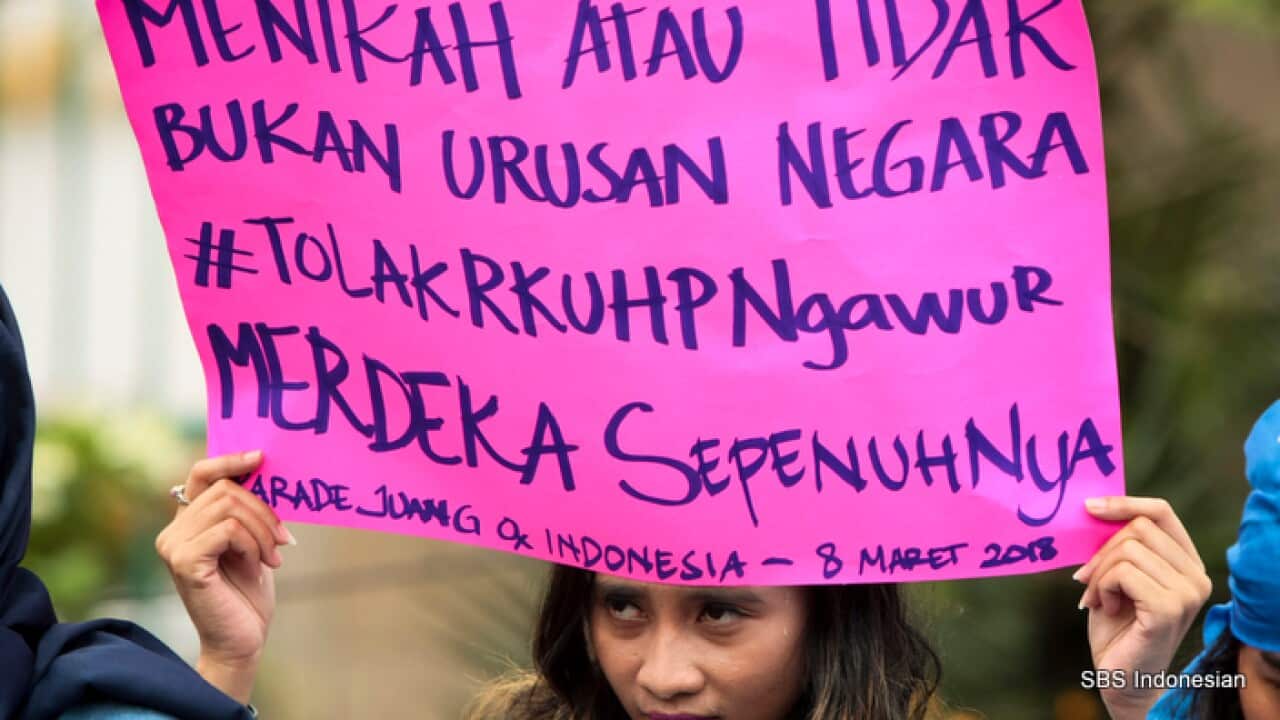 MENIKAH ATAU TIDAK
BUKAN URUSAN NEGARA
#TOLAKRKUHPNgawuR
MERDEKA SEPENUHNyA
ARADE JUANG INDONESIA - 8 MARET 2018
SBS Indonesian